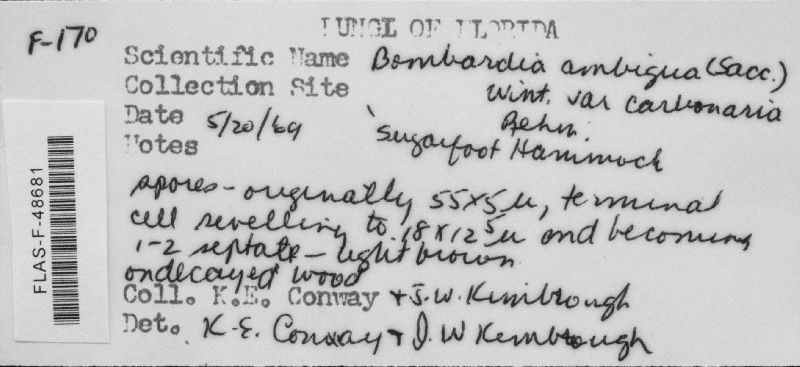 FUNGI OF FLORIDA
F-170
Scientific Name Bombardia ambigua (Sacc.)
Wint. var carbonaria
Rehm.
Collection Site
Sugarfoot Hammock
Date 5/20/69
Notes
spores - originally 55x5 u, terminal
cell swelling to 18 x 12.5 u and becoming
1-2 septate - light brown
on decayed wood
Coll. K.E. Conway + J.W. Kimbrough
Det. K.E. Conway + J.W Kimbrough
FLAS-F-48681